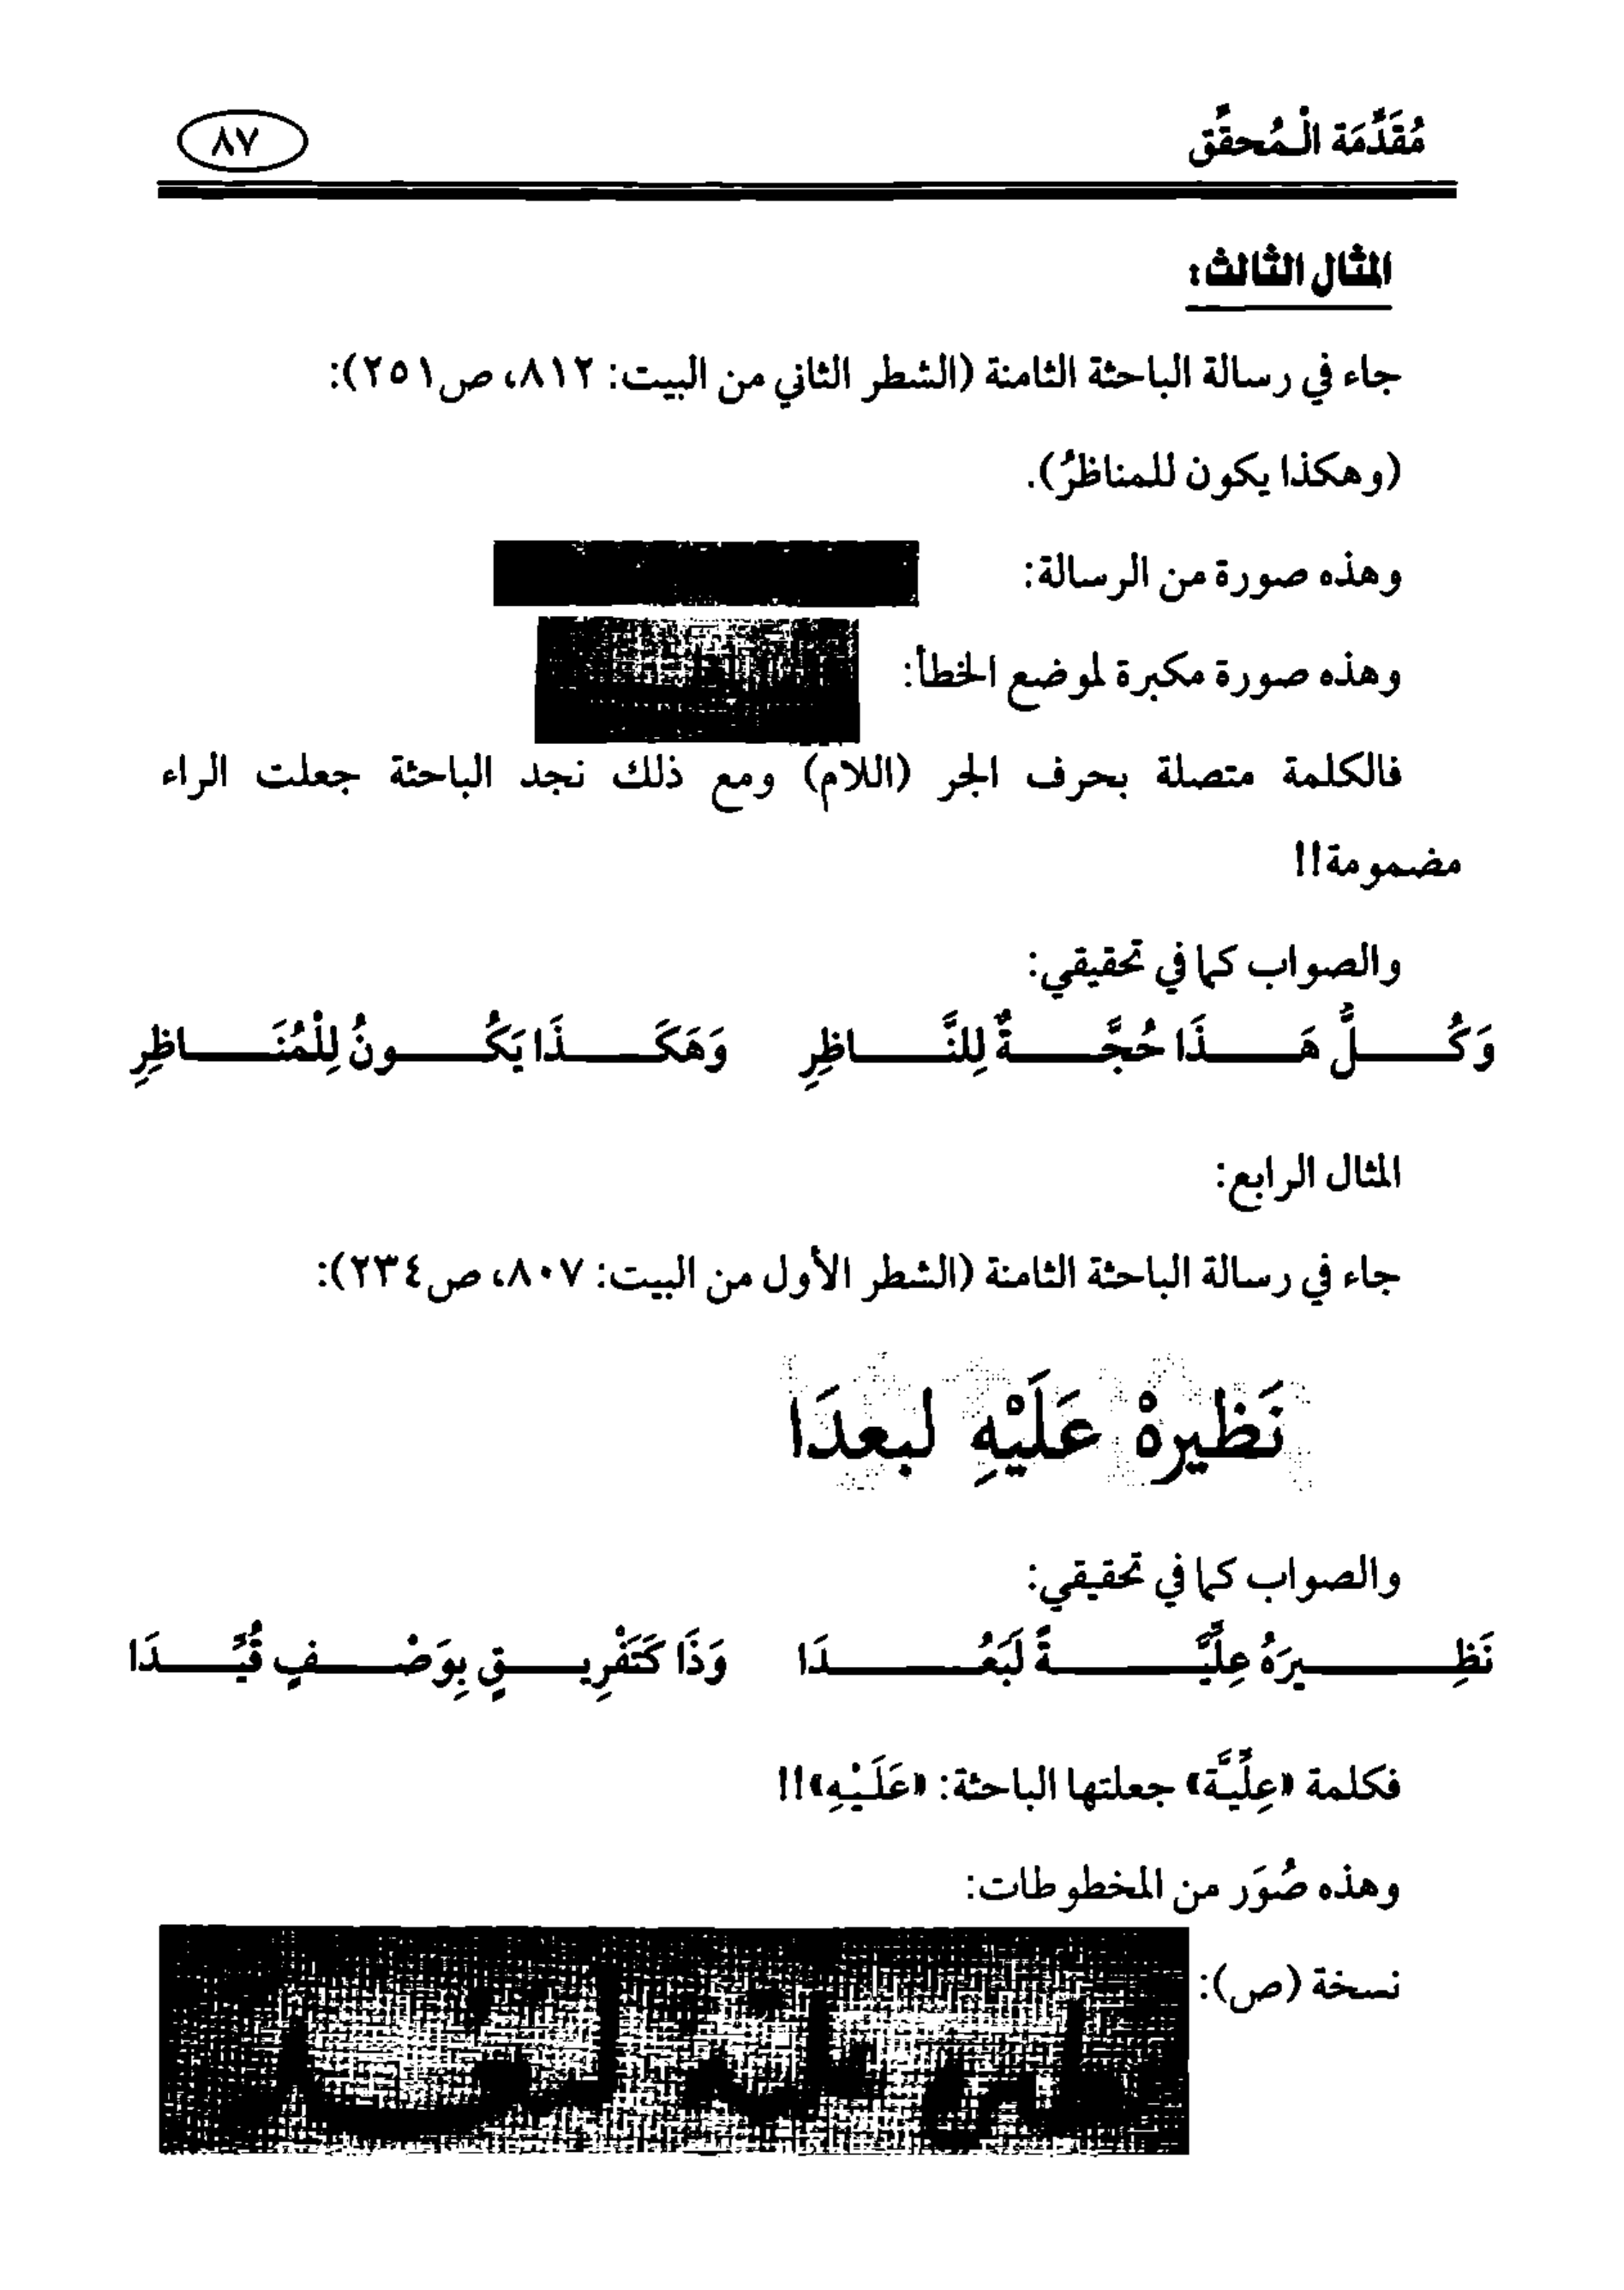 مُقَدِّمَة الْمُحقِّق
٨٧
المثال الثالث:
جاء في رسالة الباحثة الثامنة (الشطر الثاني من البيت: ٨١٢، ص٢٥١):
(وهكذا يكون للمناظرُ).
وهذه صورة من الرسالة:
وهذه صورة مكبرة لموضع الخطأ:
فالكلمة متصلة بحرف الجر (اللام) ومع ذلك نجد الباحثة جعلت الراء
مضمومة!!
والصواب كما في تحقيقي:
وَكُلُّ هَذَا حُجَّةٌ لِلنَّاظِرِ وَهَكَذَا يَكُونُ لِلْمُنَاظِرِ
المثال الرابع:
جاء في رسالة الباحثة الثامنة (الشطر الأول من البيت: ٨٠٧، ص٢٣٤):
نَظيرهْ عَلَيْهِ لبعدَا
والصواب كما في تحقيقي:
نَظِيرَهُ عِلِّيَّةً لَبَعُدَا وَذَا كَتَفْرِيقٍ بِوَصْفٍ قُيِّدَا
فكلمة «عِلِّيَّة» جعلتها الباحثة: «عَلَيْهِ»!!
وهذه صُوَر من المخطوطات:
نسخة (ص):